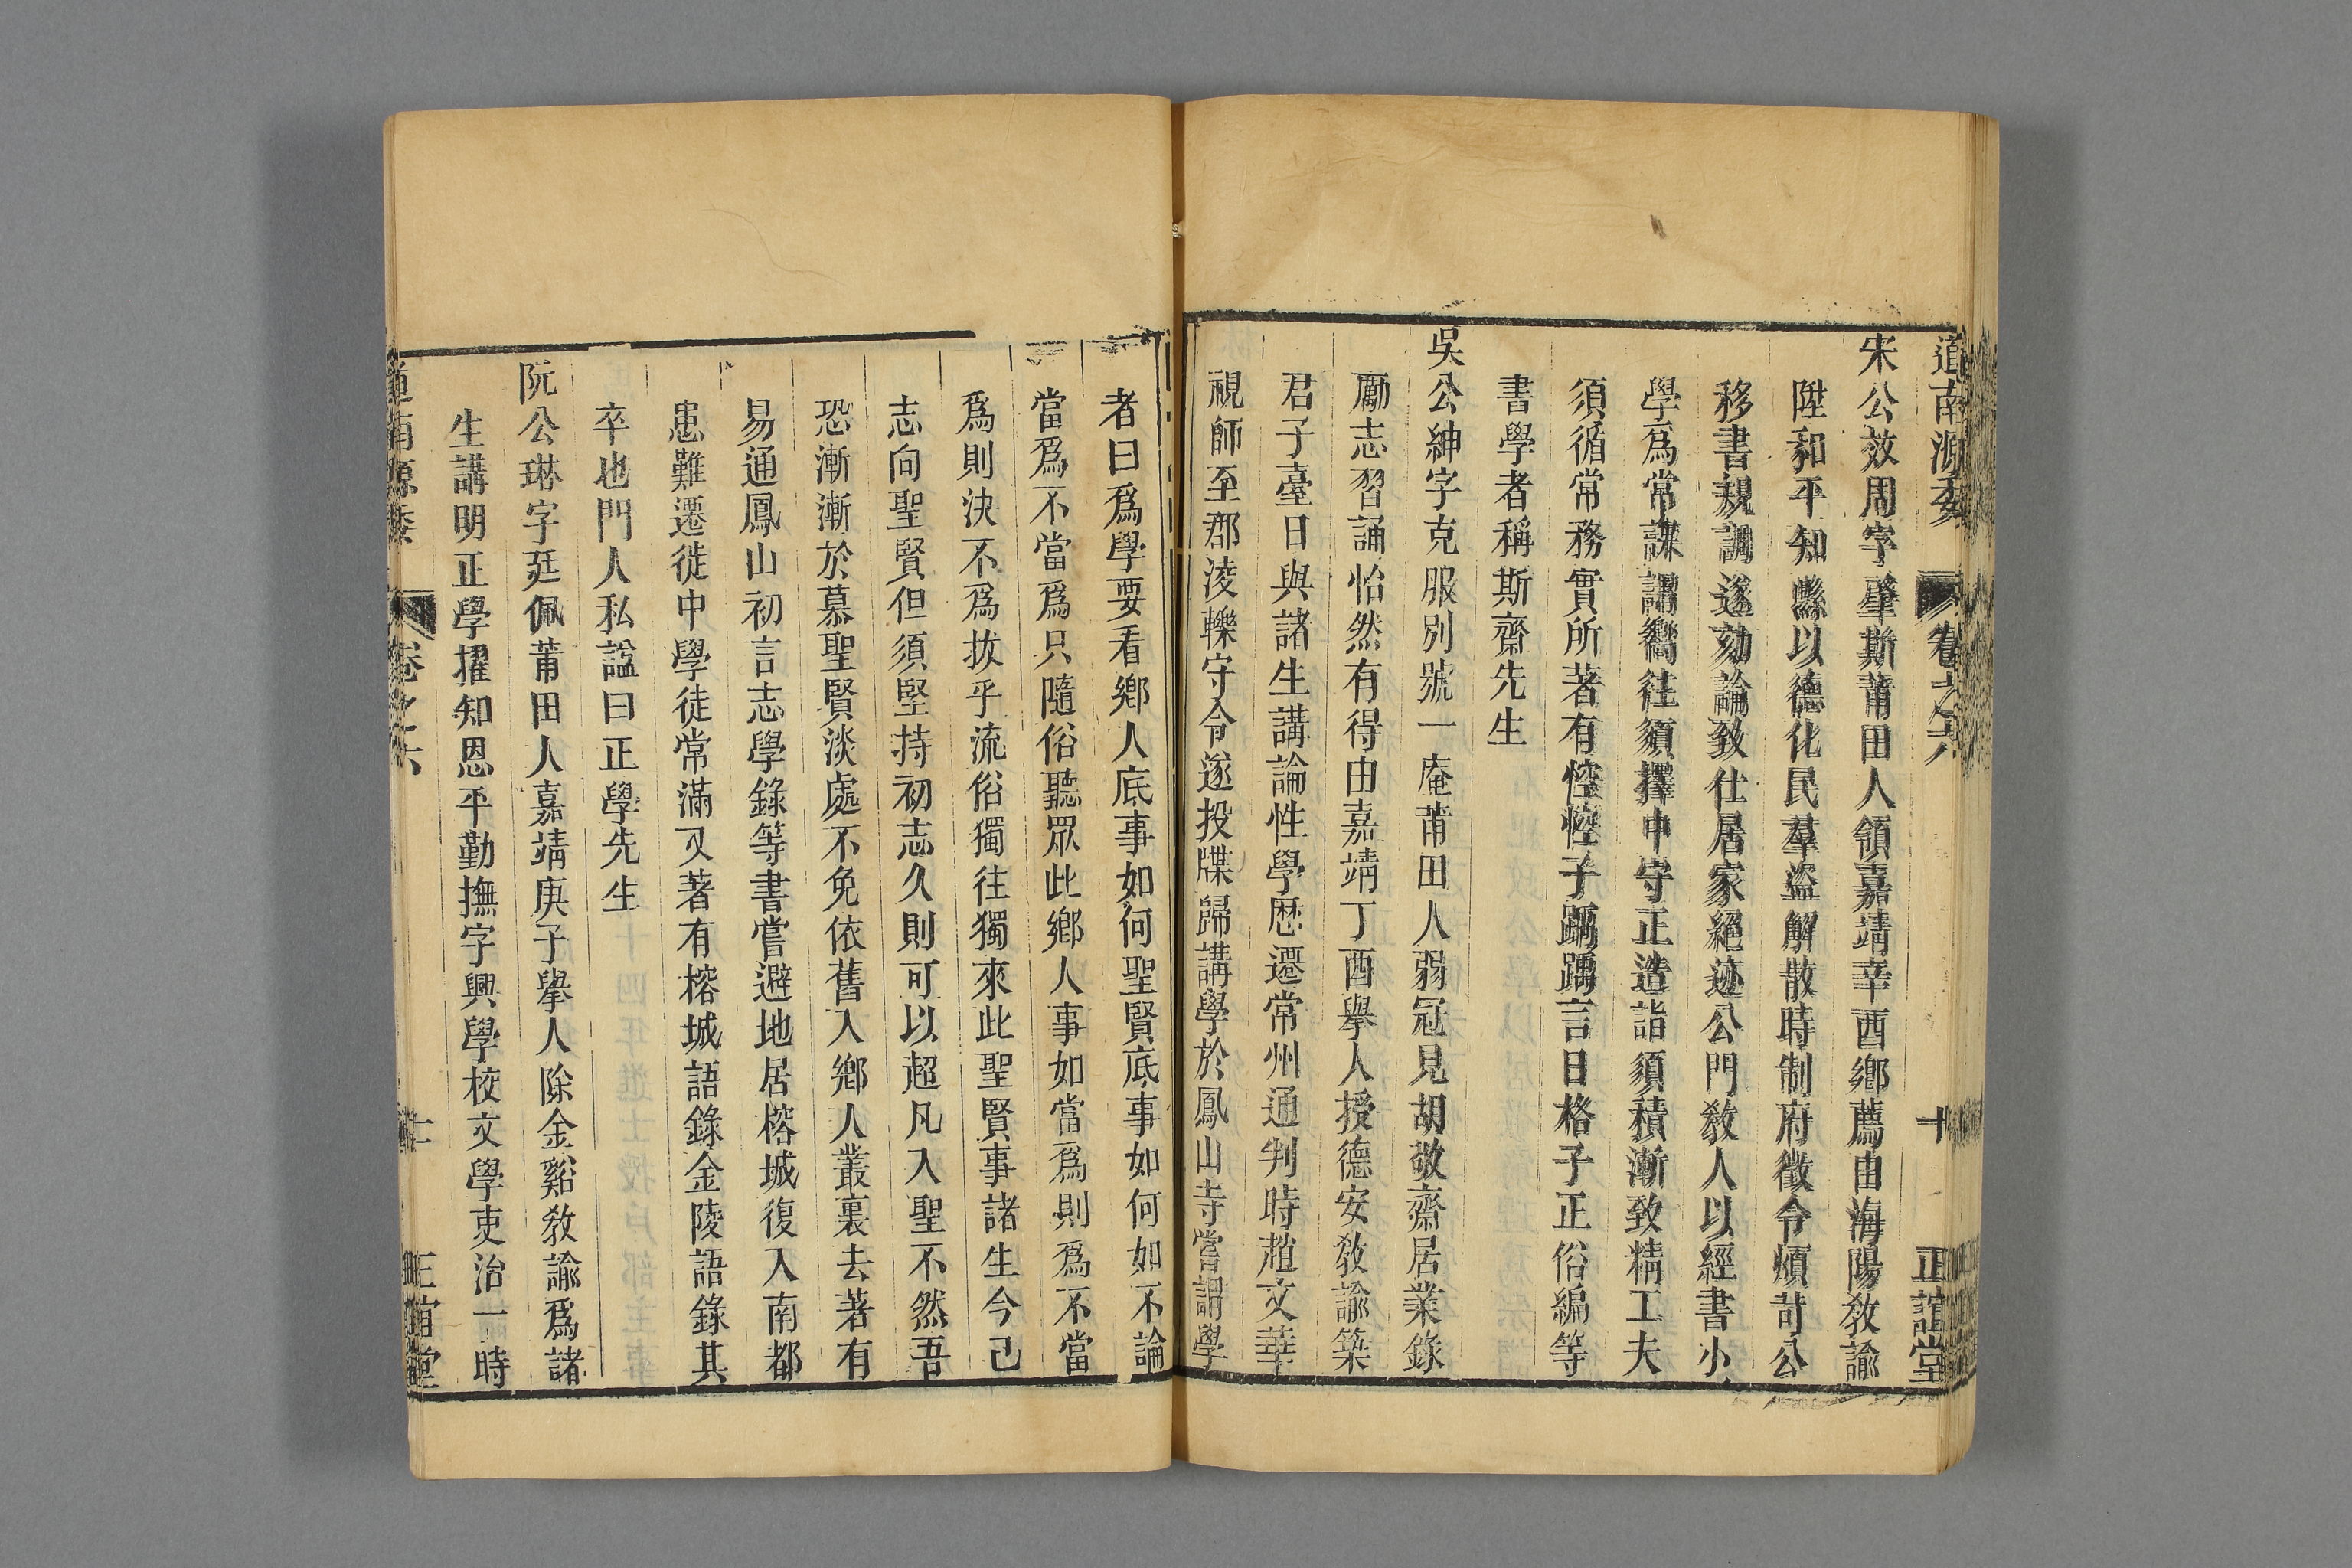 道南源委 卷之六 十 正誼堂
宋公效周字肇斯莆田人領嘉靖辛酉鄉薦由海陽教諭
陞和平知縣以德化民羣盜解散時制府徵令煩苛公
移書規調遂劾論致仕居家絕迹公門教人以經書小
學爲常課謂嚮往須擇中守正造詣須積漸致精工夫
須循常務實所著有悾悾子踽踽言日格子正俗編等
書學者稱斯齋先生
吳公紳字克服別號一庵莆田人弱冠見胡敬齋居業錄
勵志習誦怡然有得由嘉靖丁酉舉人授德安教諭築
君子臺日與諸生講論性學歷遷常州通判時趙文華
視師至郡淩轢守令遂投牒歸講學於鳳山寺嘗謂學
者曰爲學要看鄉人底事如何聖賢底事如何如不論
當爲不當爲只隨俗聽眾此鄉人事如當爲則爲不當
爲則決不爲拔乎流俗獨往獨來此聖賢事諸生今己
志向聖賢但須堅持初志久則可以超凡入聖不然吾
恐漸漸於慕聖賢淡處不免依舊入鄉人叢裏去著有
易通鳳山初言志學錄等書嘗避地居榕城復入南都
患難遷徙中學徒常滿又著有榕城語錄金陵語錄其
卒也門人私諡曰正學先生
阮公琳字廷佩莆田人嘉靖庚子舉人除金谿教諭爲諸
生講明正學擢知恩平勤撫字興學校文學吏治一時
道南源委 卷之六 十一 正誼堂